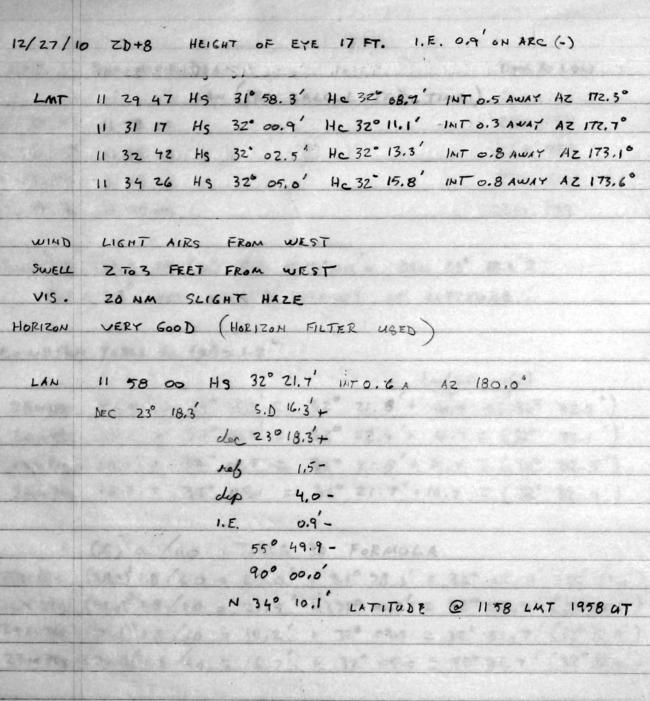 12/27/10 ZD+8 HEIGHT OF EYE 17 FT. I.E. 0.9' ON ARC (-)
LMT 11 29 47 HS 31° 58.3' Hc 32° 08.7' INT 0.5 AWAY AZ 172.3°
11 31 17 HS 32° 00.9' Hc 32° 11.1' INT 0.3 AWAY AZ 172.7°
11 32 42 HS 32° 02.5' Hc 32° 13.3' INT 0.8 AWAY AZ 173.1°
11 34 26 HS 32° 05.0' Hc 32° 15.8' INT 0.8 AWAY AZ 173.6°
WIND LIGHT AIRS FROM WEST
SWELL 2 TO 3 FEET FROM WEST
VIS. 20 NM SLIGHT HAZE
HORIZON VERY GOOD (HORIZON FILTER USED)
LAN 11 58 00 HS 32° 21.7' INT 0.6 A AZ 180.0°
DEC 23° 18.3' S.D 16.3'+
dec 23° 18.3'+
ref 1.5-
dip 4.0-
I.E. 0.9'-
55° 49.9-
90° 00.0'
N 34° 10.1' LATITUDE @ 1158 LMT 1958 UT